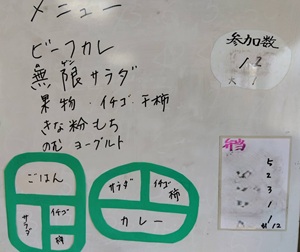 メニュー
ビーフカレ
無限サラダ
果物・イチゴ・干柿
きな粉もち
のむヨーグルト
参加数
12
弁当
5
2
3
1
1
12
ごはん
サラダ
イチゴ
柿
サラダ
イチゴ
柿
カレー